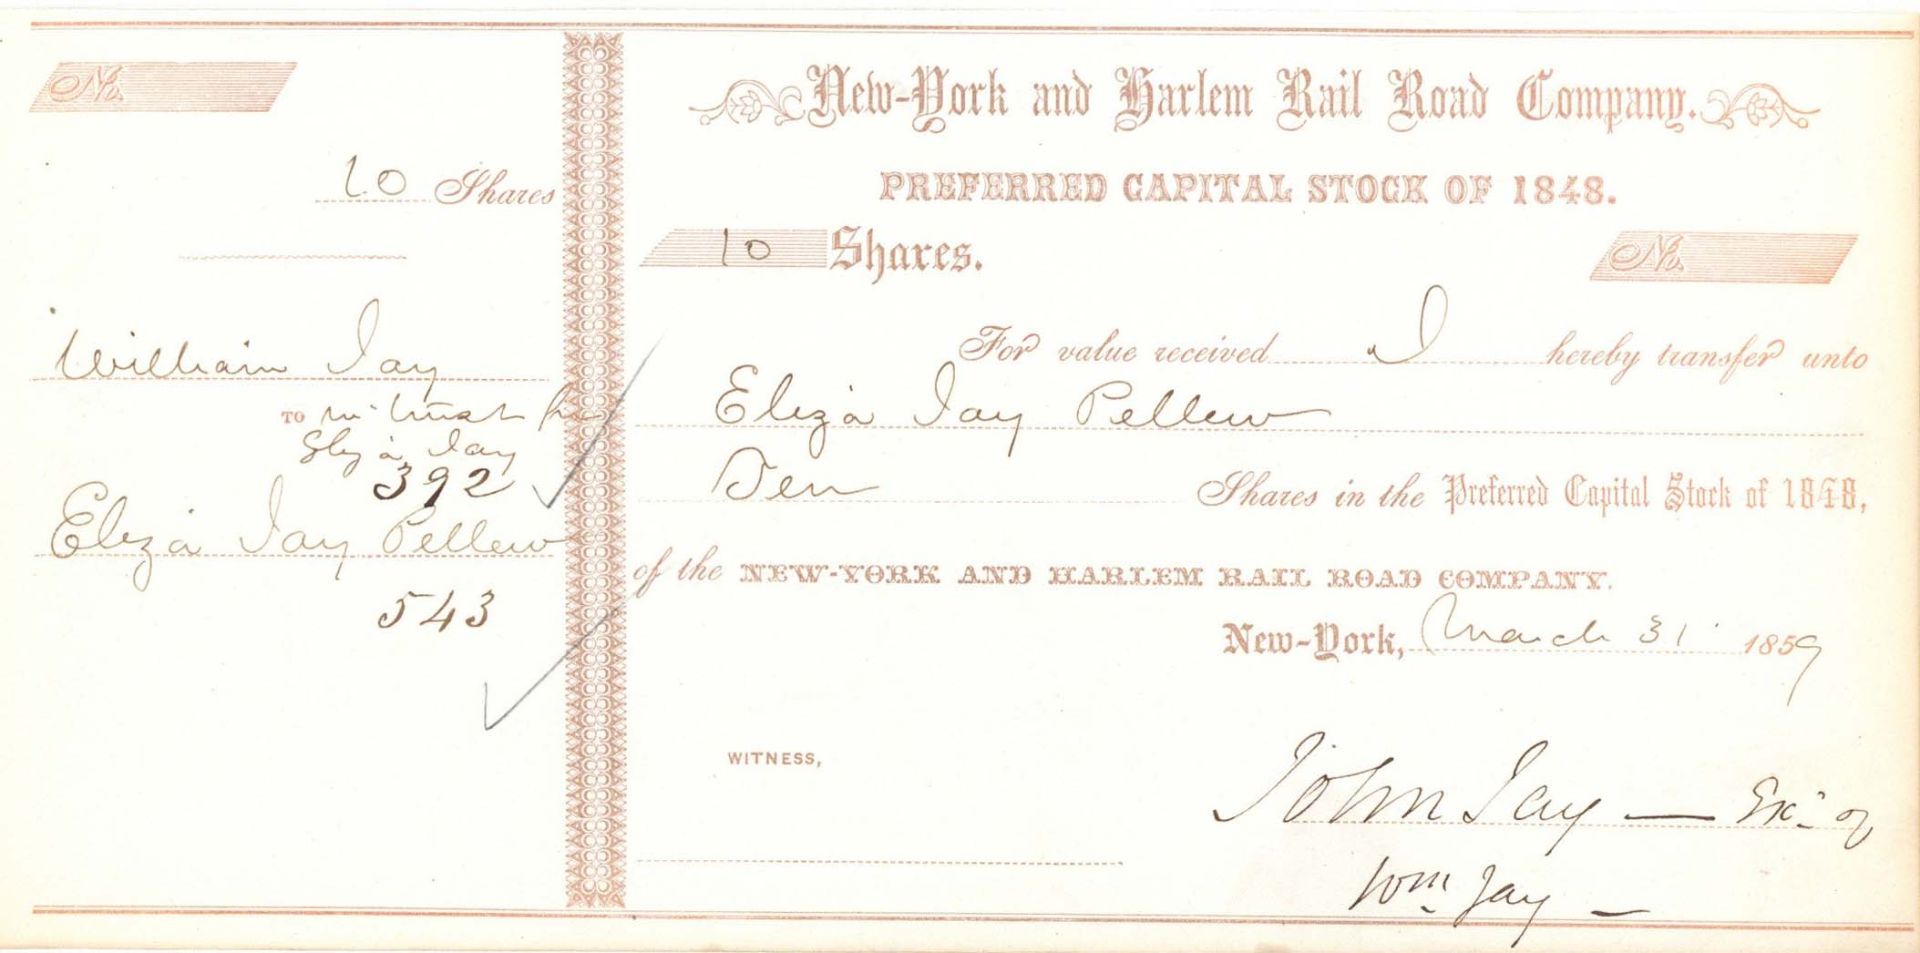 No.
10 Shares
William Jay
TO in trust for
Eliza Jay
392
Eliza Jay Pellew
543
New-York and Harlem Rail Road Company.
PREFERRED CAPITAL STOCK OF 1848.
10 Shares.
No.
For value received I hereby transfer unto
Eliza Jay Pellew
Ten Shares in the Preferred Capital Stock of 1848,
of the NEW-YORK AND HARLEM RAIL ROAD COMPANY.
New-York, March 31 1859
WITNESS,
John Jay — Exr of
Wm Jay —